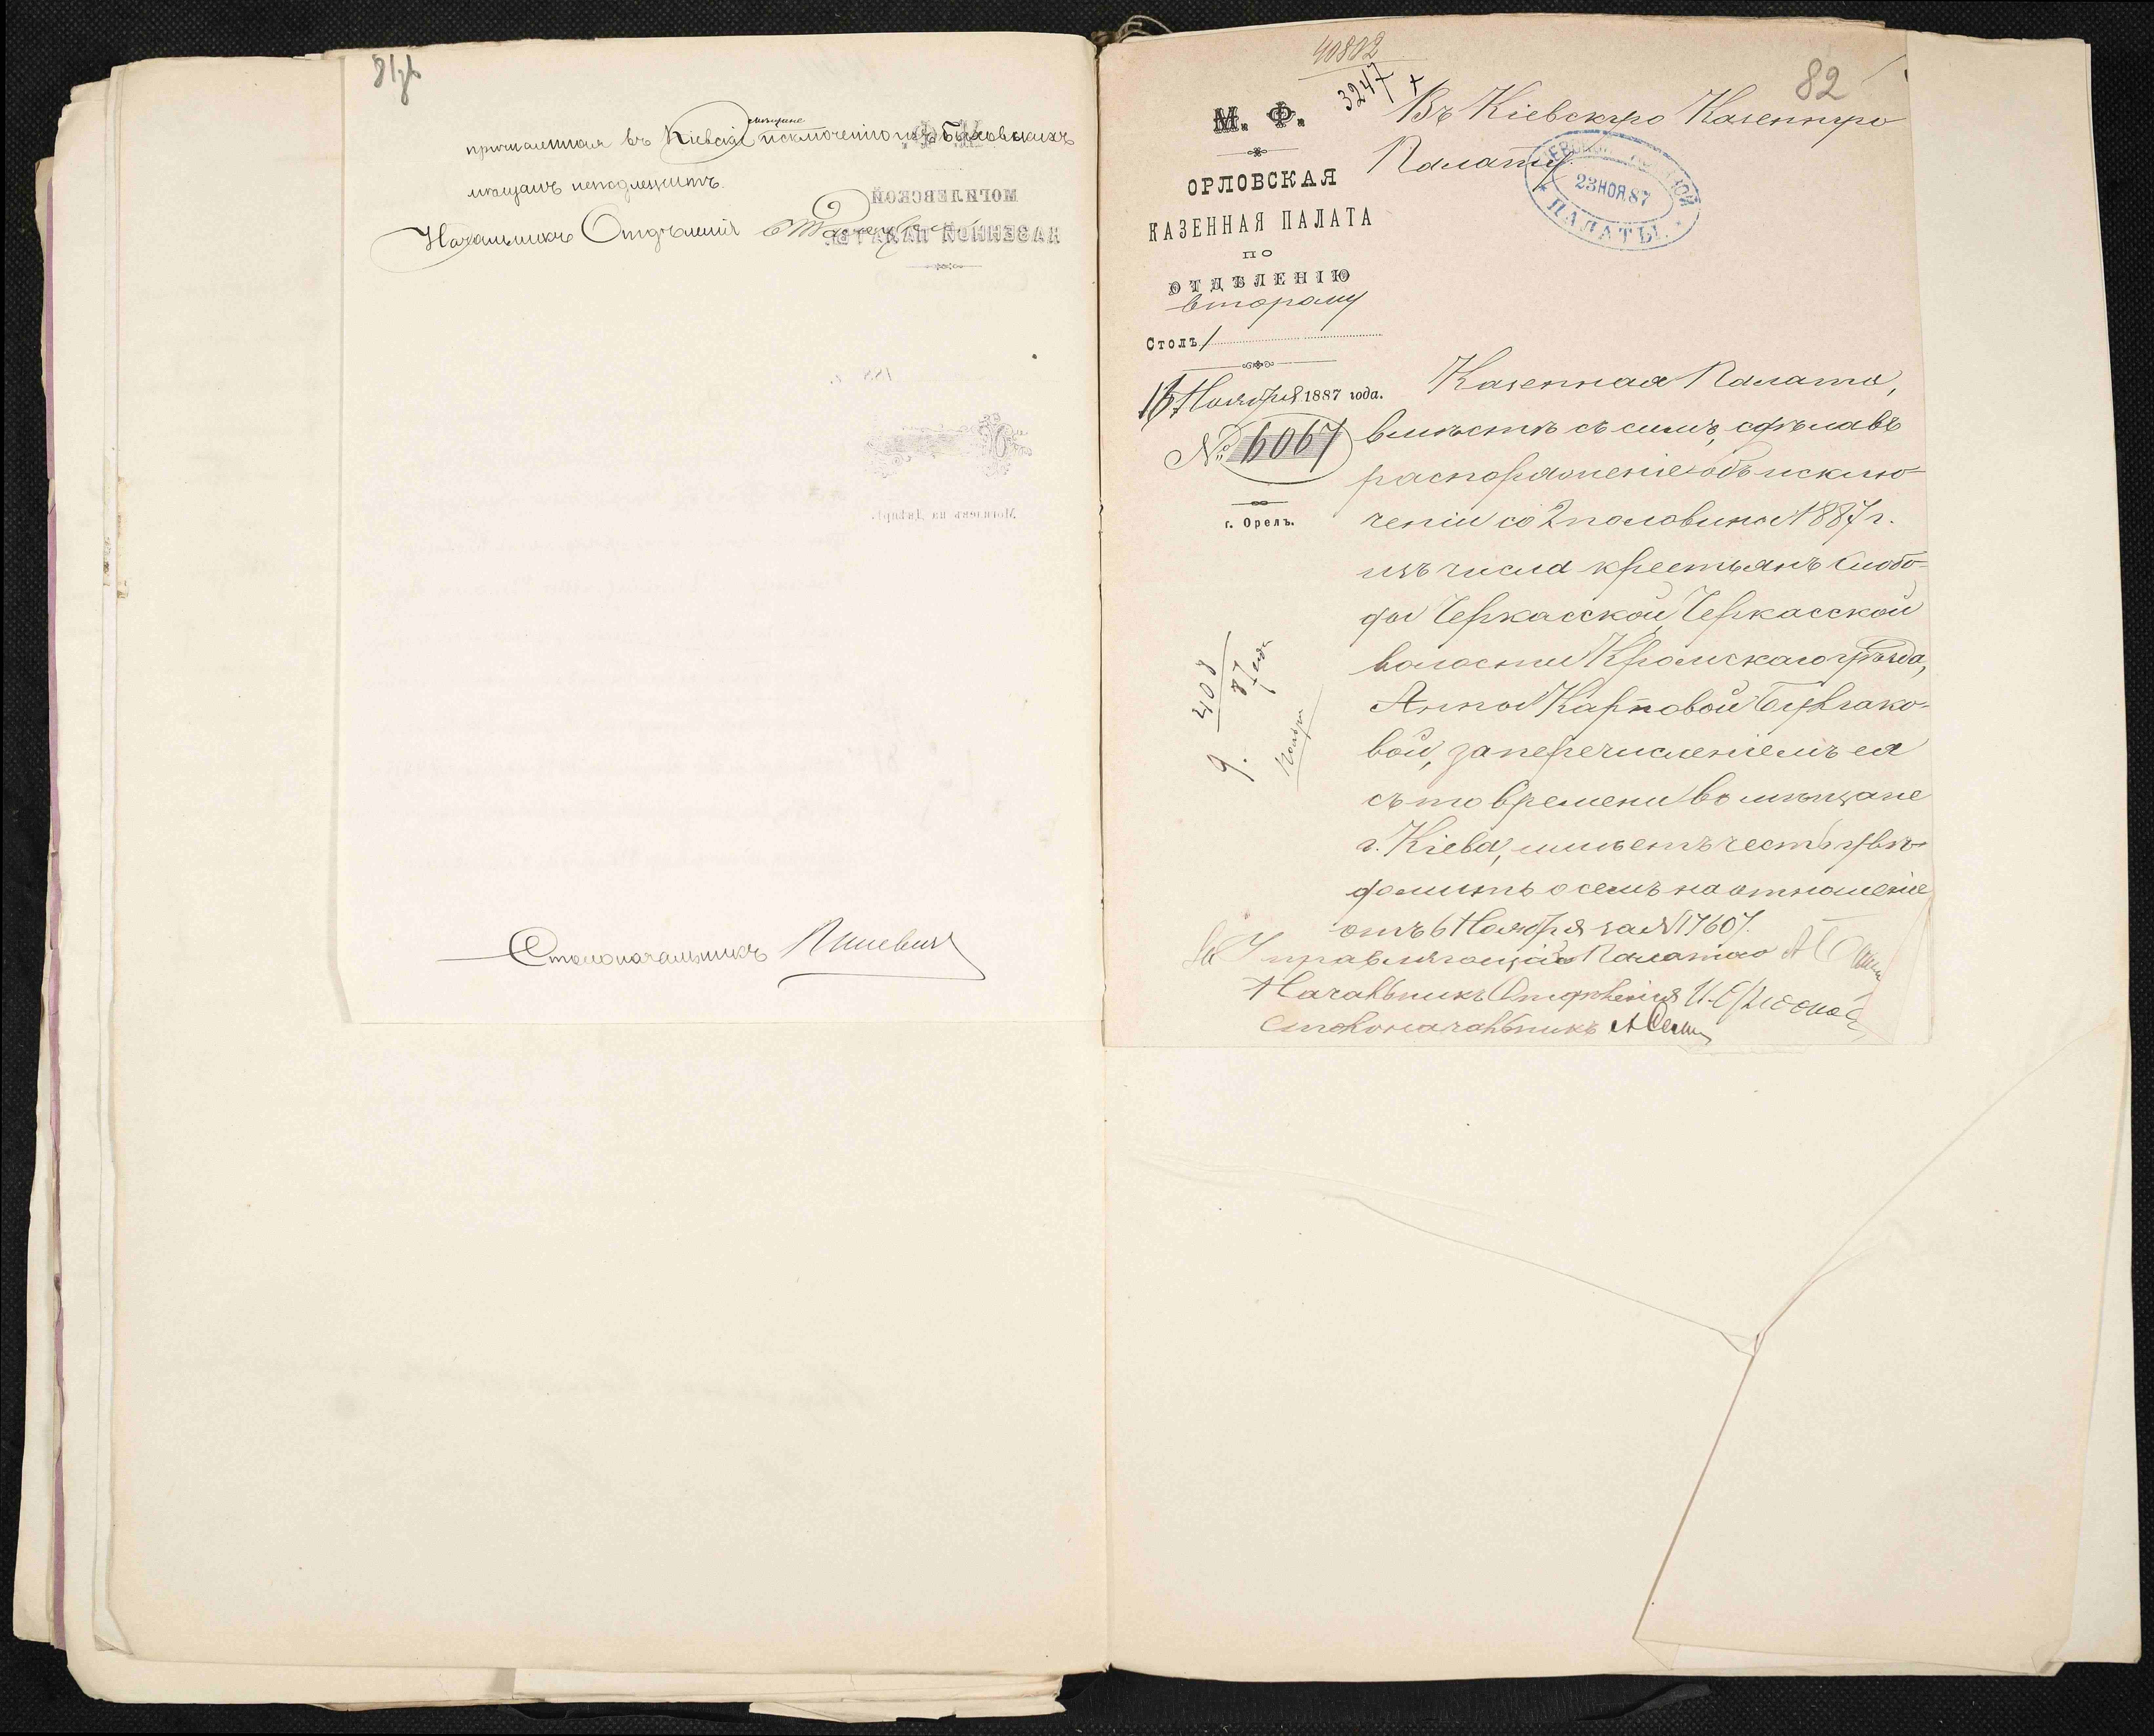 81об
мѣщане
причисленная въ Кіевскіе исключенію изъ Быховскихъ
мѣщанъ неподлежитъ.
Начальникъ Отдѣленія
Столоначальникъ
40802
3247
82
Въ Кіевскую Казенную
Палату.
М. Ф.
ОРЛОВСКАЯ
КАЗЕННАЯ ПАЛАТА
ПО
ОТДѢЛЕНІЮ
второму
Столъ 1
16 Ноября 1887 года.
№ 6067
г. Орелъ.
23 НОЯ. 87
ПАЛАТЫ.
Казенная Палата,
вмѣстѣ съ симъ, сдѣлавъ
распоряженіе объ исклю-
ченіи со 2 половины 1887 г.
изъ числа крестьянъ Слобо-
ды Черкасской, Черкасской
волости Кромскаго уѣзда,
Анны Карповой Булгако-
вой, за перечисленіемъ ея
съ того времени въ мѣщане
г. Кіева, имѣетъ честь увѣ-
домить о семъ на отношеніе
отъ 6 Ноября за № 17607.
За Управляющаго Палатою
Начальникъ Отдѣленія
Столоначальникъ
9. 408
87 года
Ноября